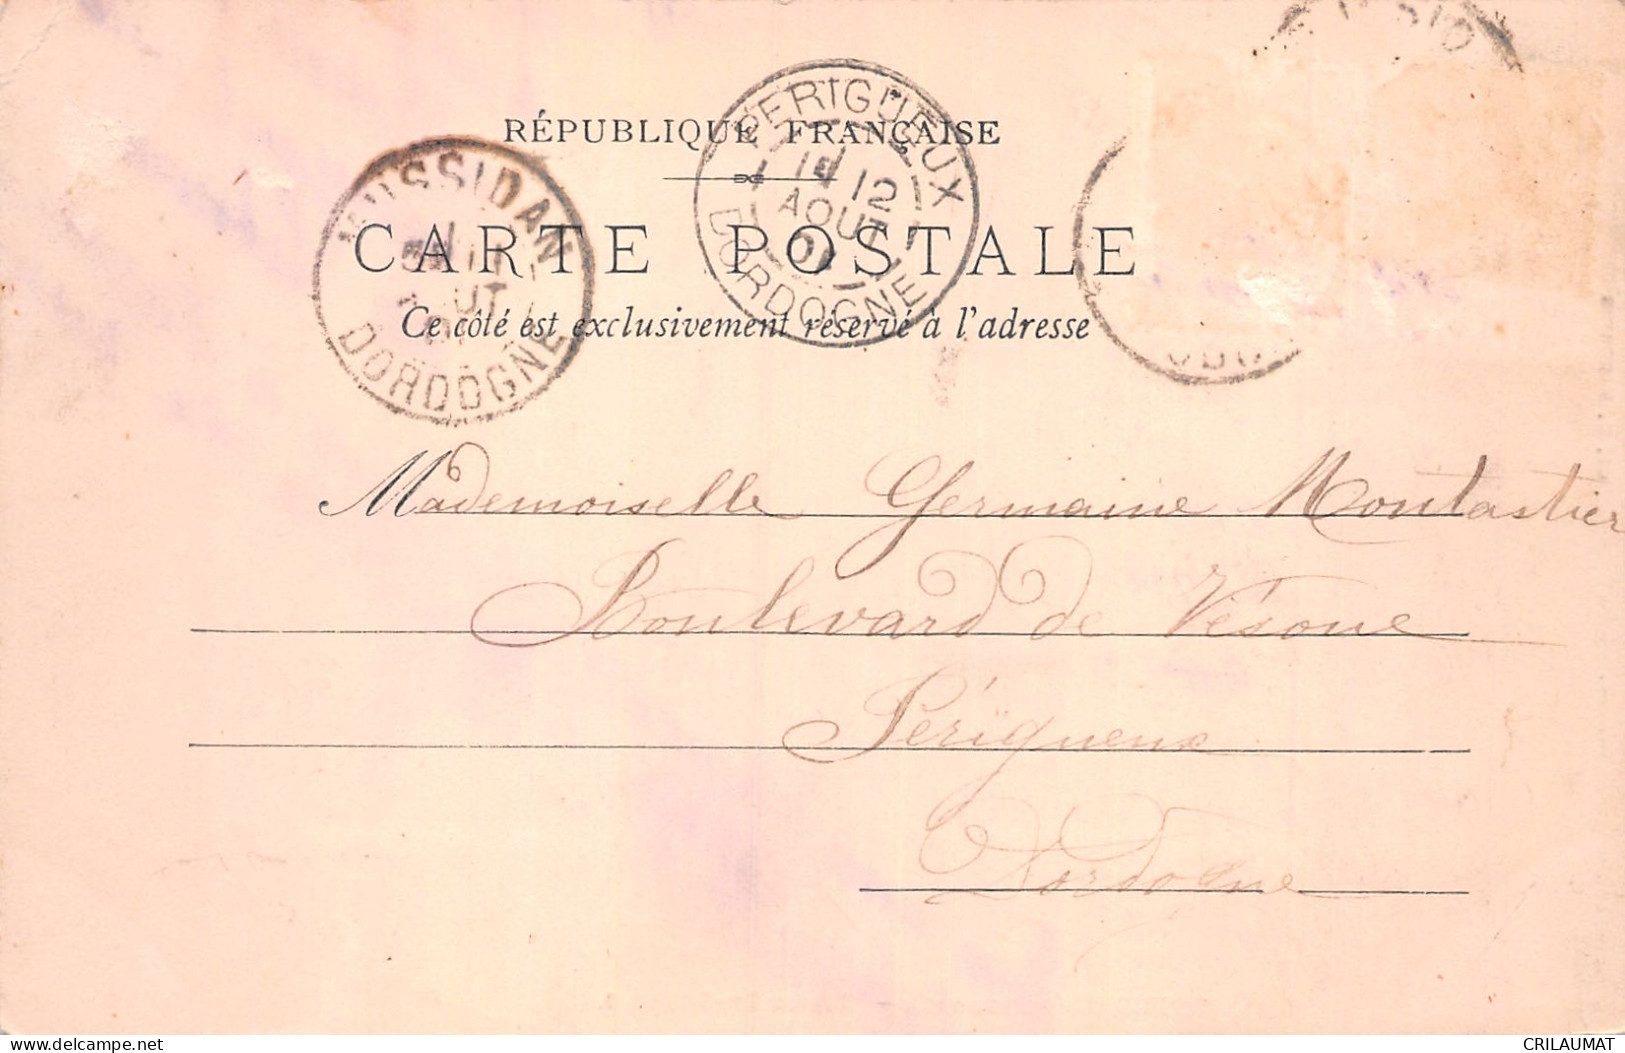 RÉPUBLIQUE FRANÇAISE
CARTE POSTALE
Ce côté est exclusivement réservé à l'adresse
MUSSIDAN
DORDOGNE
PERIGUEUX
12
AOUT
DORDOGNE
Mademoiselle Germaine Montastier
Boulevard de Vésone
Périgueux
Dordogne
www.delcampe.net
CRILAUMAT